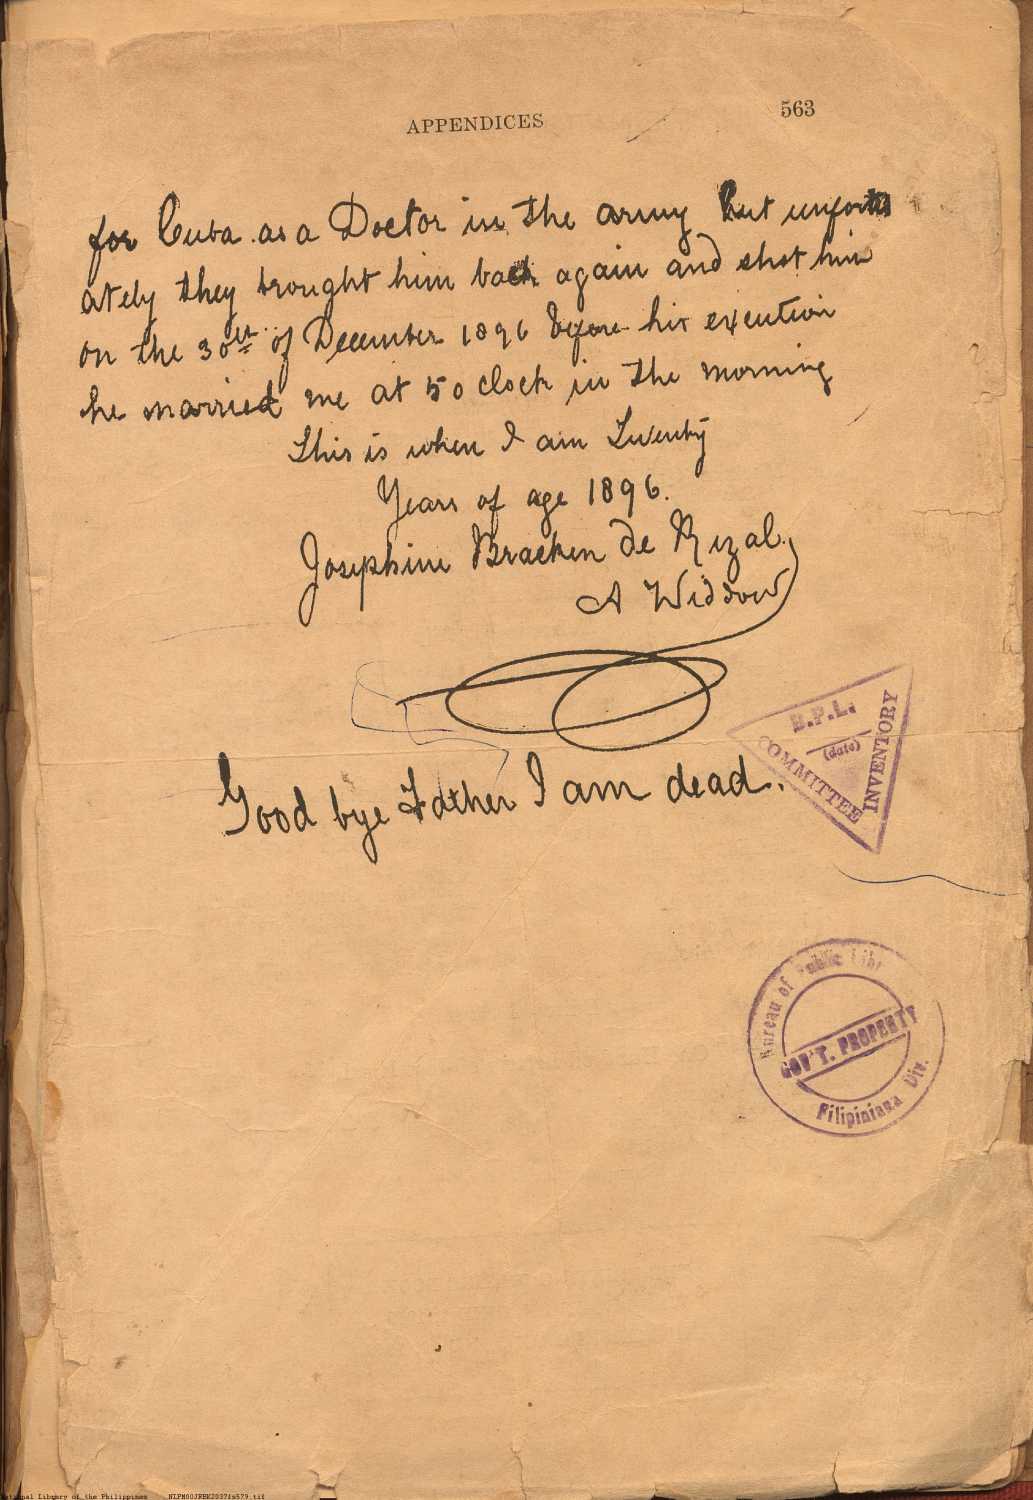 APPENDICES 563
for Cuba as a Doctor in the army but unfortu
ately they brought him back again and shot him
on the 30th of December 1896 before his exeution
he married me at 5 o clock in the morning
This is when I am Twenty
Years of age 1896.
Josephine Bracken de Rizal.
A Widdow
Good bye Father I am dead.
B.P.L.
(date)
COMMITTEE
INVENTORY
Bureau of Public Libr
GOV'T. PROPERTY
Filipiniana Div.
National Library of the Philippines